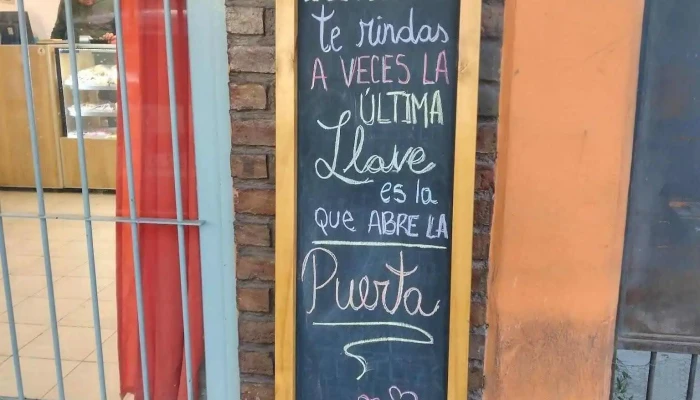 te rindas
A VECES LA
ÚLTIMA
Llave
es la
QUE ABRE LA
Puerta